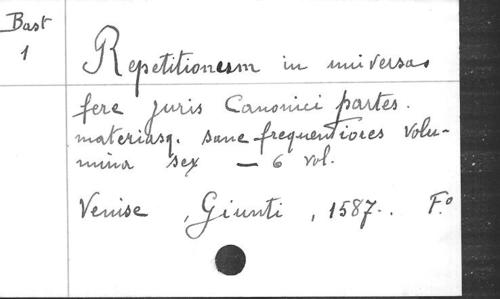 Bast
1
Repetitionum in universas
fere juris Canonici partes.
materiasq. sane frequentiores volu-
mina sex — 6 vol.
Venise, Giunti, 1587. F.o